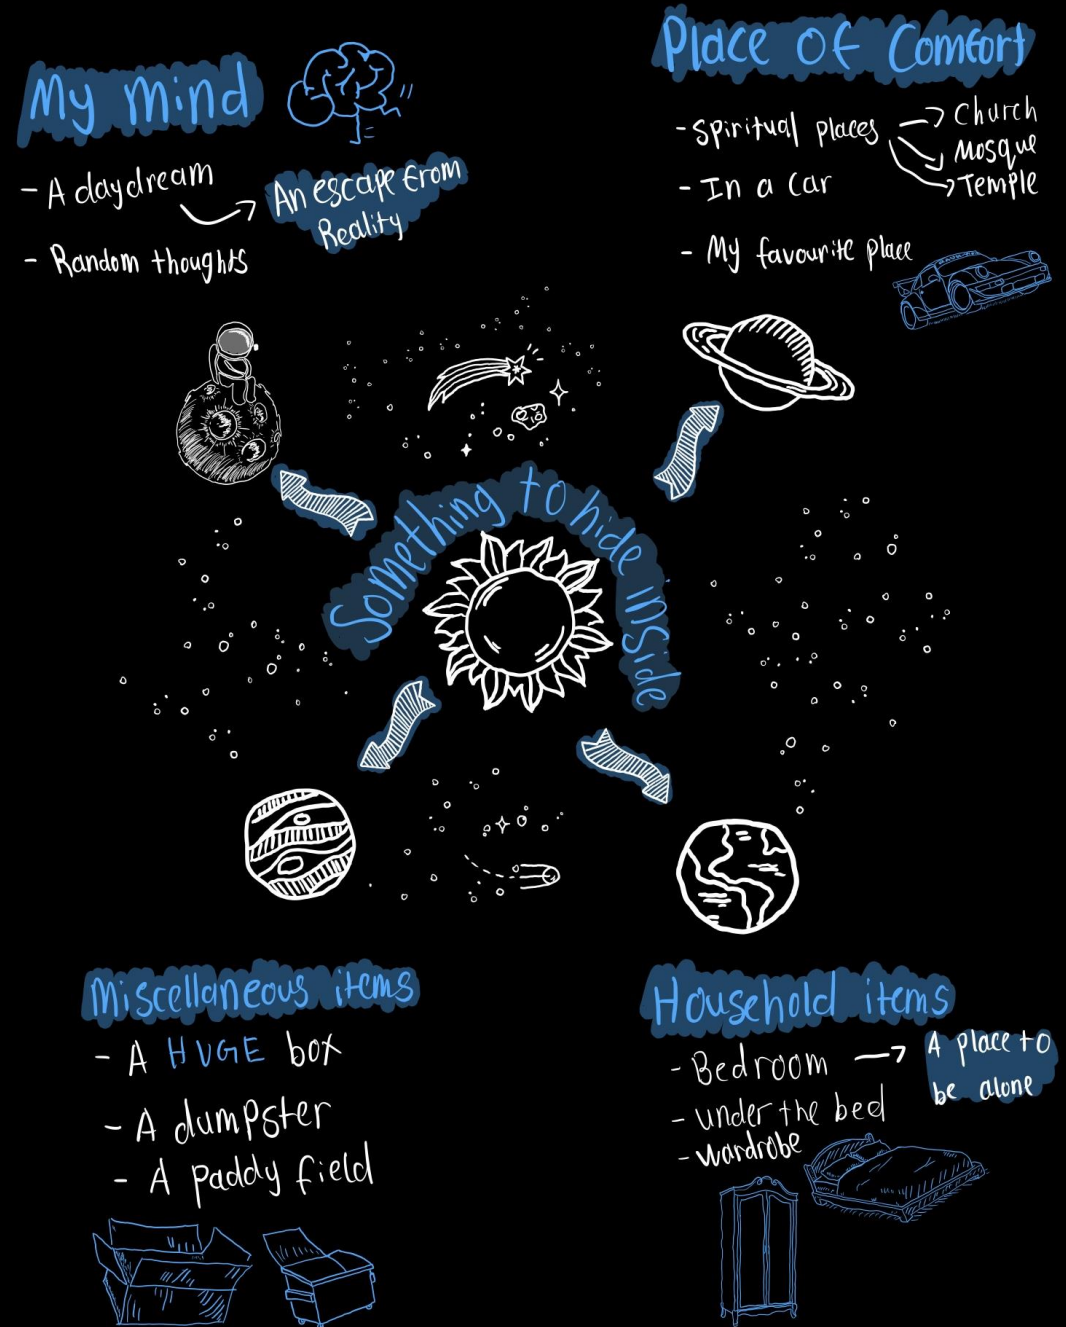 My mind
- A daydream
An escape from
Reality
- Random thoughts
Place of Comfort
- Spiritual places
Church
Mosque
Temple
- In a car
- My favourite place
Something to hide inside
Miscellaneous items
- A HUGE box
- A dumpster
- A paddy field
Household items
- Bedroom
A place to
be alone
- under the bed
- wardrobe